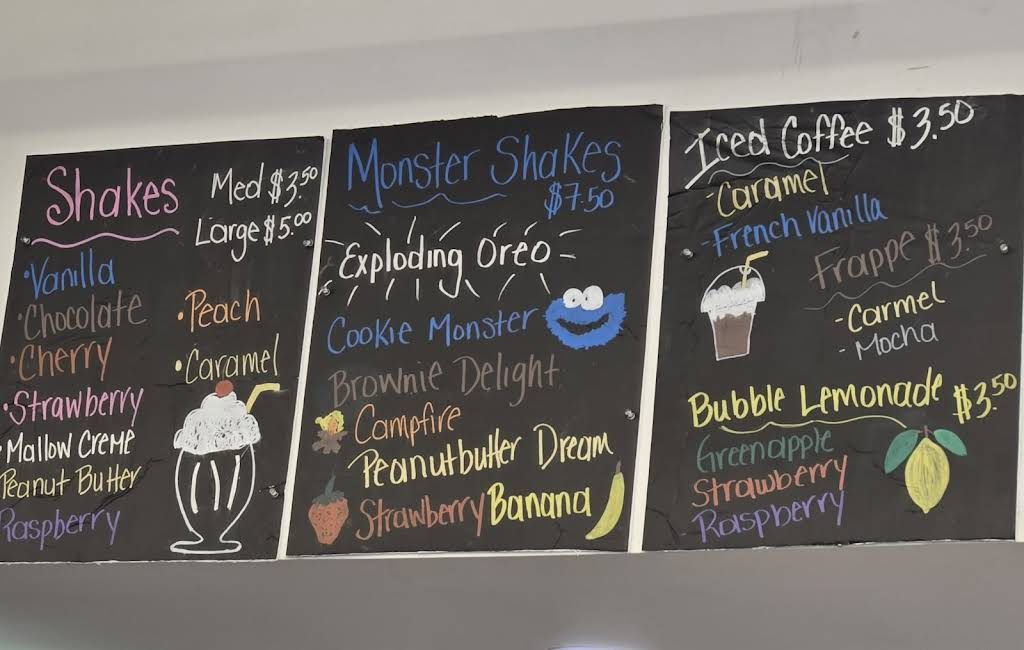 Shakes
Med $3.50
Large $5.00
•Vanilla
•Chocolate
•Cherry
•Strawberry
•Mallow Creme
Peanut Butter
Raspberry
•Peach
•Caramel
Monster Shakes
$7.50
Exploding Oreo
Cookie Monster
Brownie Delight
Campfire
Peanutbutter Dream
Strawberry Banana
Iced Coffee $3.50
-Caramel
-French Vanilla
Frappe $3.50
-Carmel
-Mocha
Bubble Lemonade $3.50
Greenapple
Strawberry
Raspberry